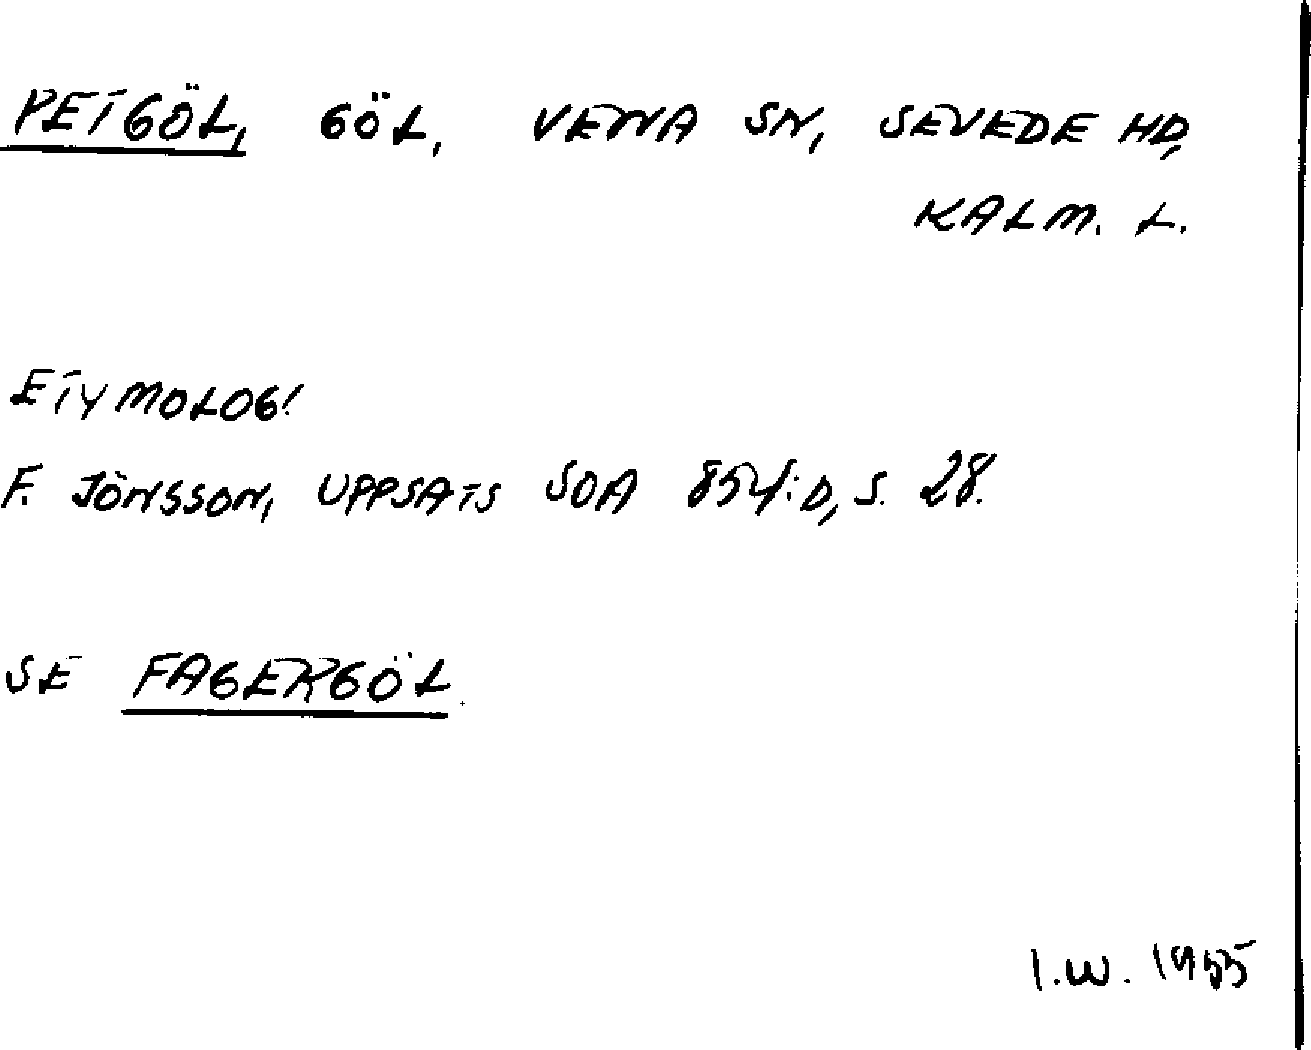 PETGÖL, GÖL, VENA SN, SEVEDE HD,
KALM. L.
ETYMOLOGI
F. JÖNSSON, UPPSATS SOA 854:D, S. 28.
SE FAGERGÖL.
I.W. 1955